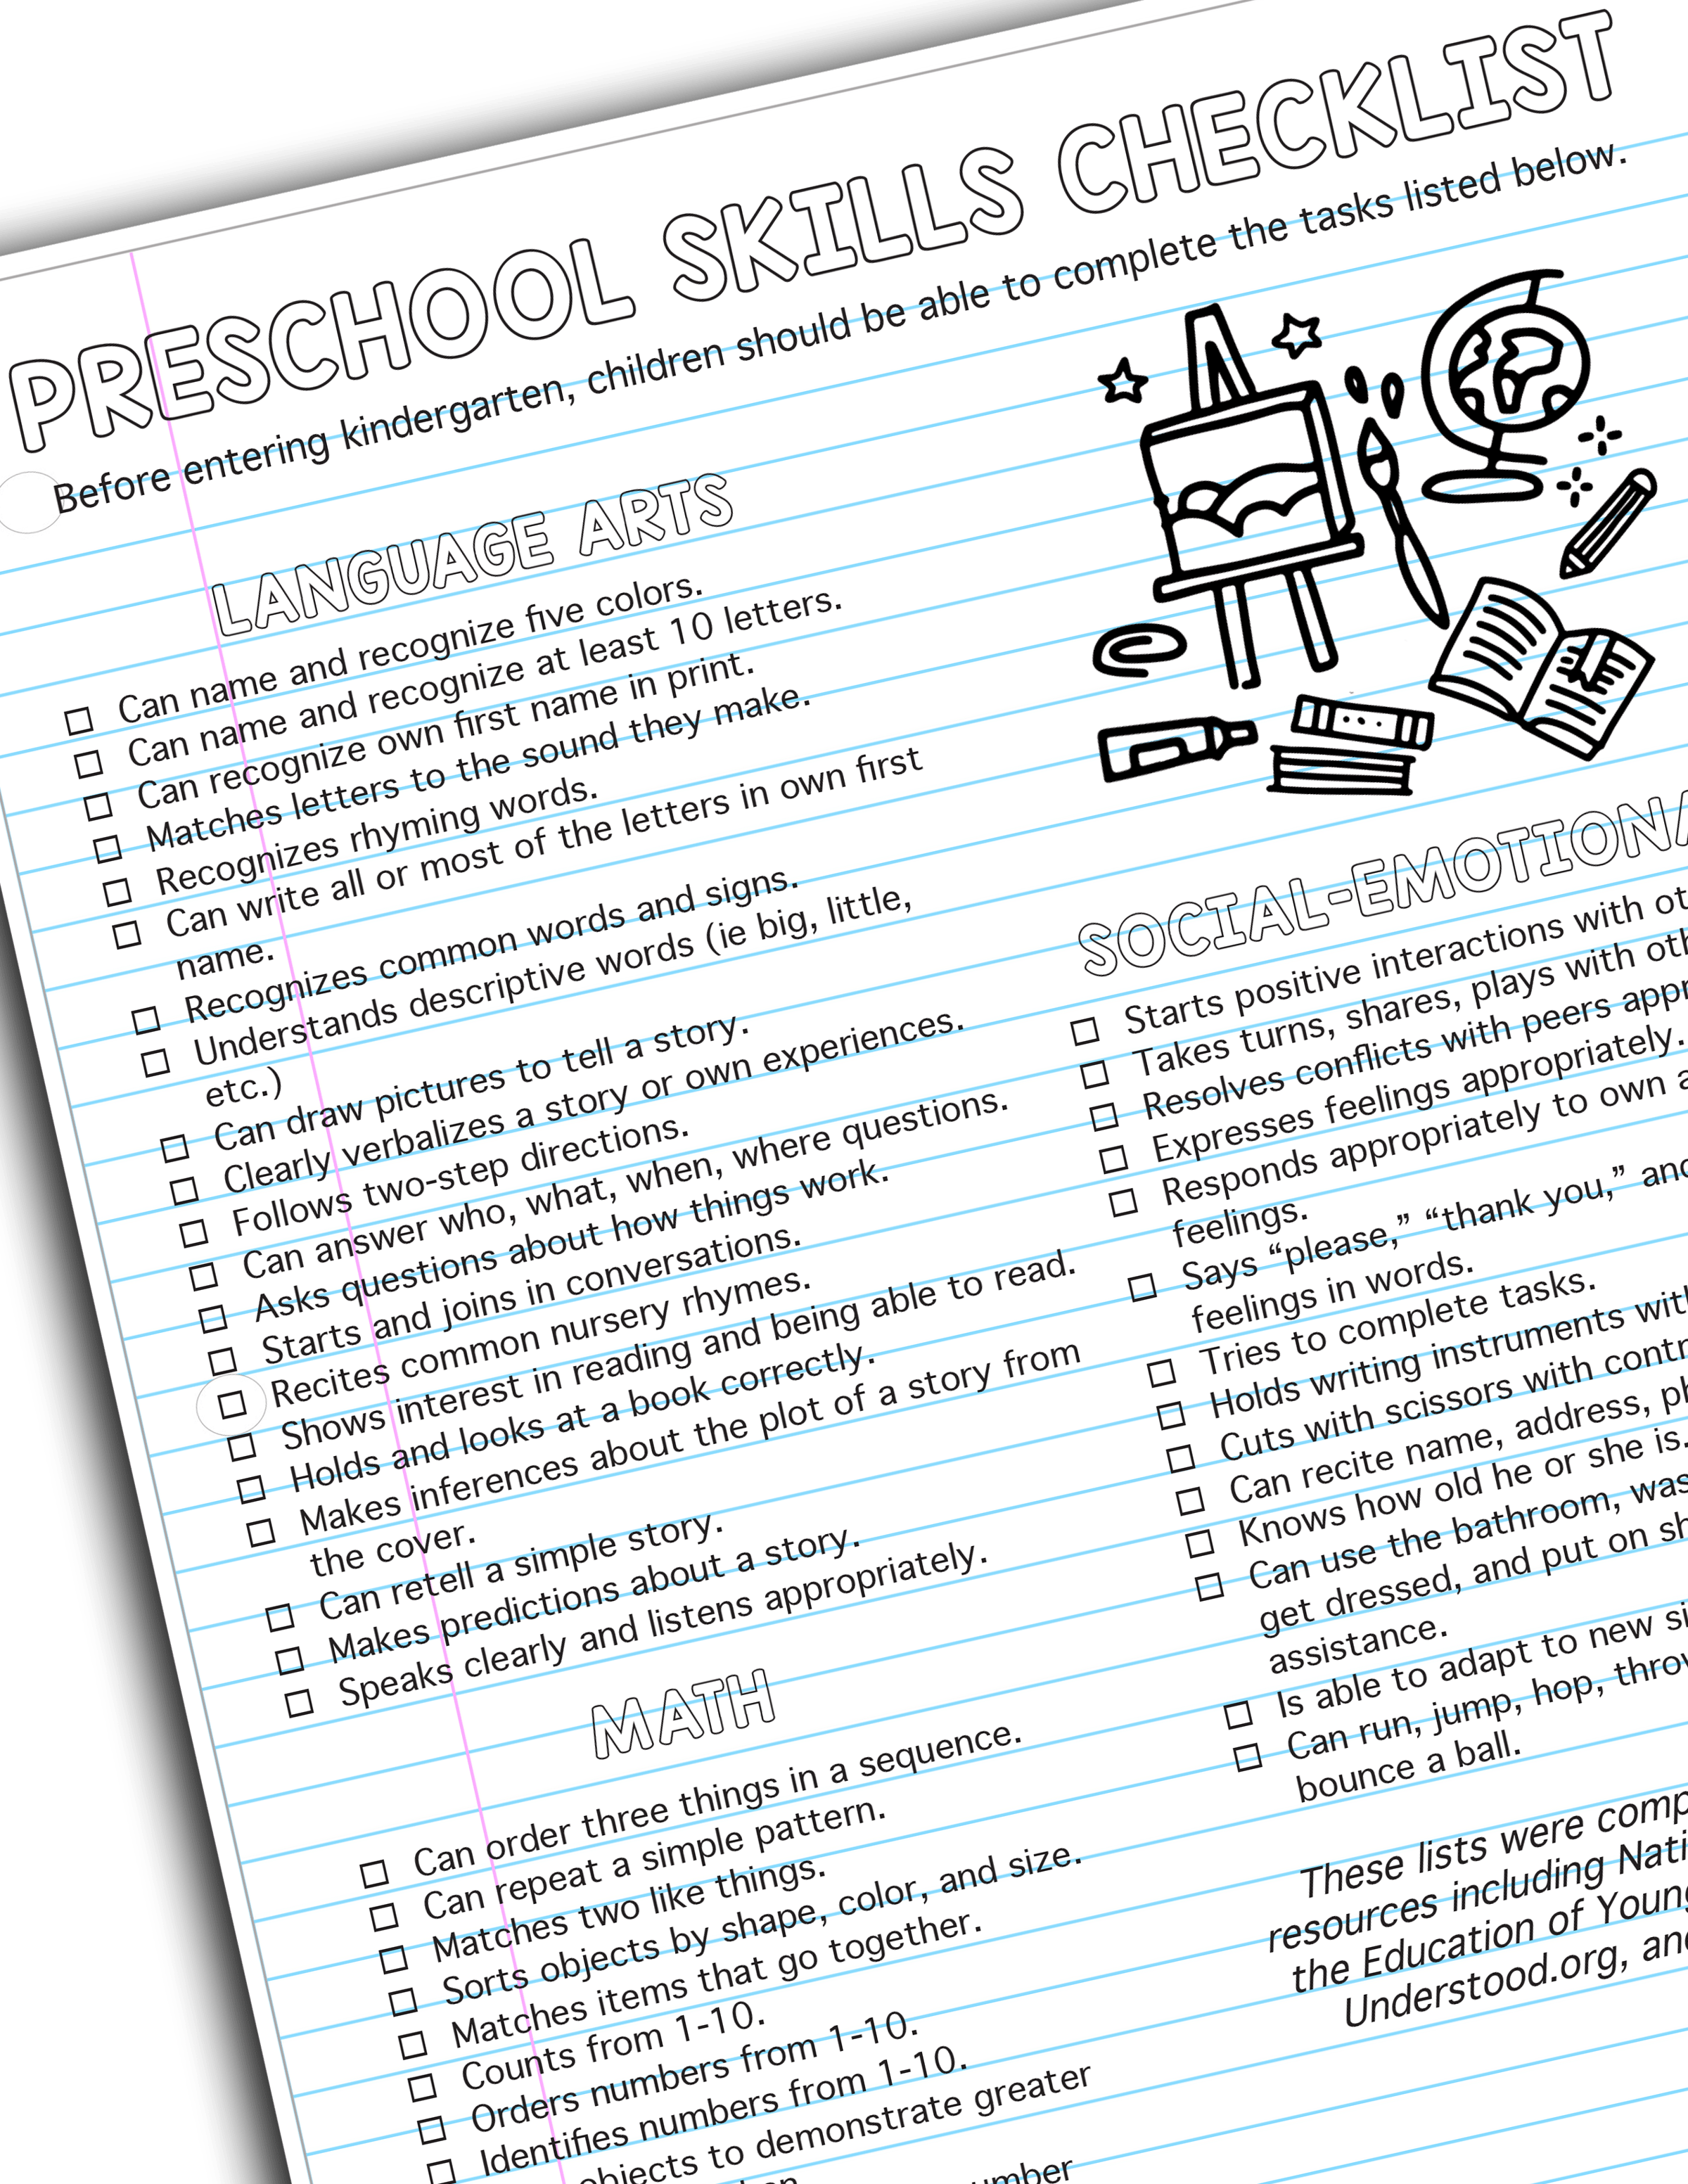 PRESCHOOL SKILLS CHECKLIST
Before entering kindergarten, children should be able to complete the tasks listed below.
LANGUAGE ARTS
Can name and recognize five colors.
Can name and recognize at least 10 letters.
Can recognize own first name in print.
Matches letters to the sound they make.
Recognizes rhyming words.
Can write all or most of the letters in own first
name.
Recognizes common words and signs.
Understands descriptive words (ie big, little,
etc.)
Can draw pictures to tell a story.
Clearly verbalizes a story or own experiences.
Follows two-step directions.
Can answer who, what, when, where questions.
Asks questions about how things work.
Starts and joins in conversations.
Recites common nursery rhymes.
Shows interest in reading and being able to read.
Holds and looks at a book correctly.
Makes inferences about the plot of a story from
the cover.
Can retell a simple story.
Makes predictions about a story.
Speaks clearly and listens appropriately.
MATH
Can order three things in a sequence.
Can repeat a simple pattern.
Matches two like things.
Sorts objects by shape, color, and size.
Matches items that go together.
Counts from 1-10.
Orders numbers from 1-10.
Identifies numbers from 1-10.
objects to demonstrate greater
SOCIAL-EMOTIONA
Starts positive interactions with
Takes turns, shares, plays with
Resolves conflicts with peers
Expresses feelings appropriately.
Responds appropriately to own
feelings.
Says “please,” “thank you,” and
feelings in words.
Tries to complete tasks.
Holds writing instruments with
Cuts with scissors with
Can recite name, address,
Knows how old he or she is.
Can use the bathroom,
get dressed, and put on
assistance.
Is able to adapt to new
Can run, jump, hop,
bounce a ball.
These lists were
resources including
the Education of Young
Understood.org, and